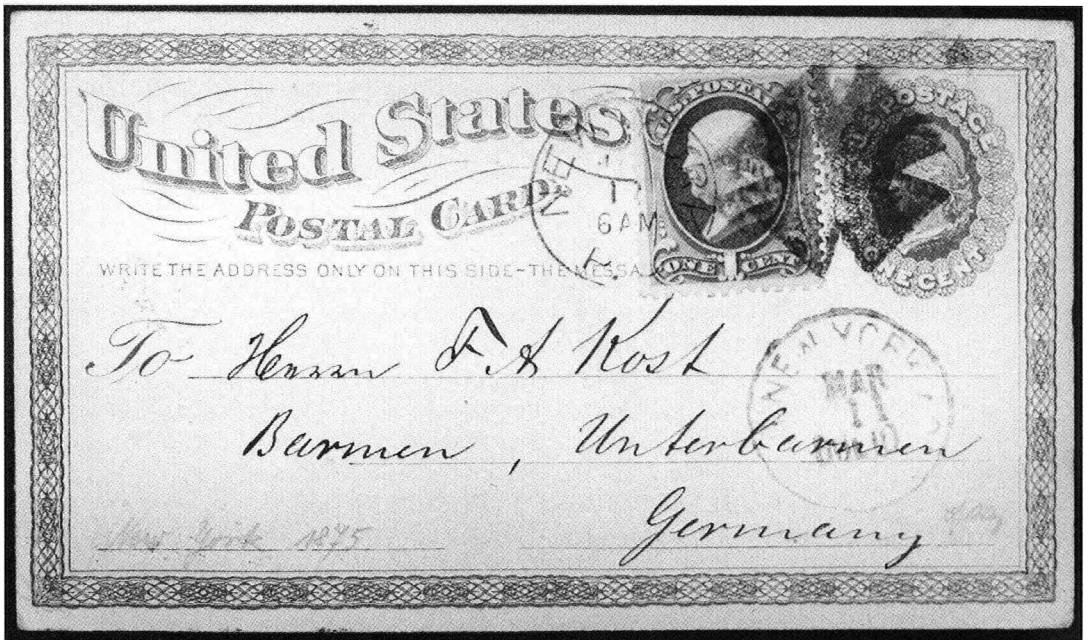 United States
POSTAL CARD
WRITE THE ADDRESS ONLY ON THIS SIDE-THE MESSA
U.S. POSTAGE
ONE 1 CENT
U.S. POSTAGE
ONE CENT
NEW
1
6 AM
To Herrn F A Kost
Barmen, Unterbarmen
Germany
NEW YORK
MAR
1
New York 1875